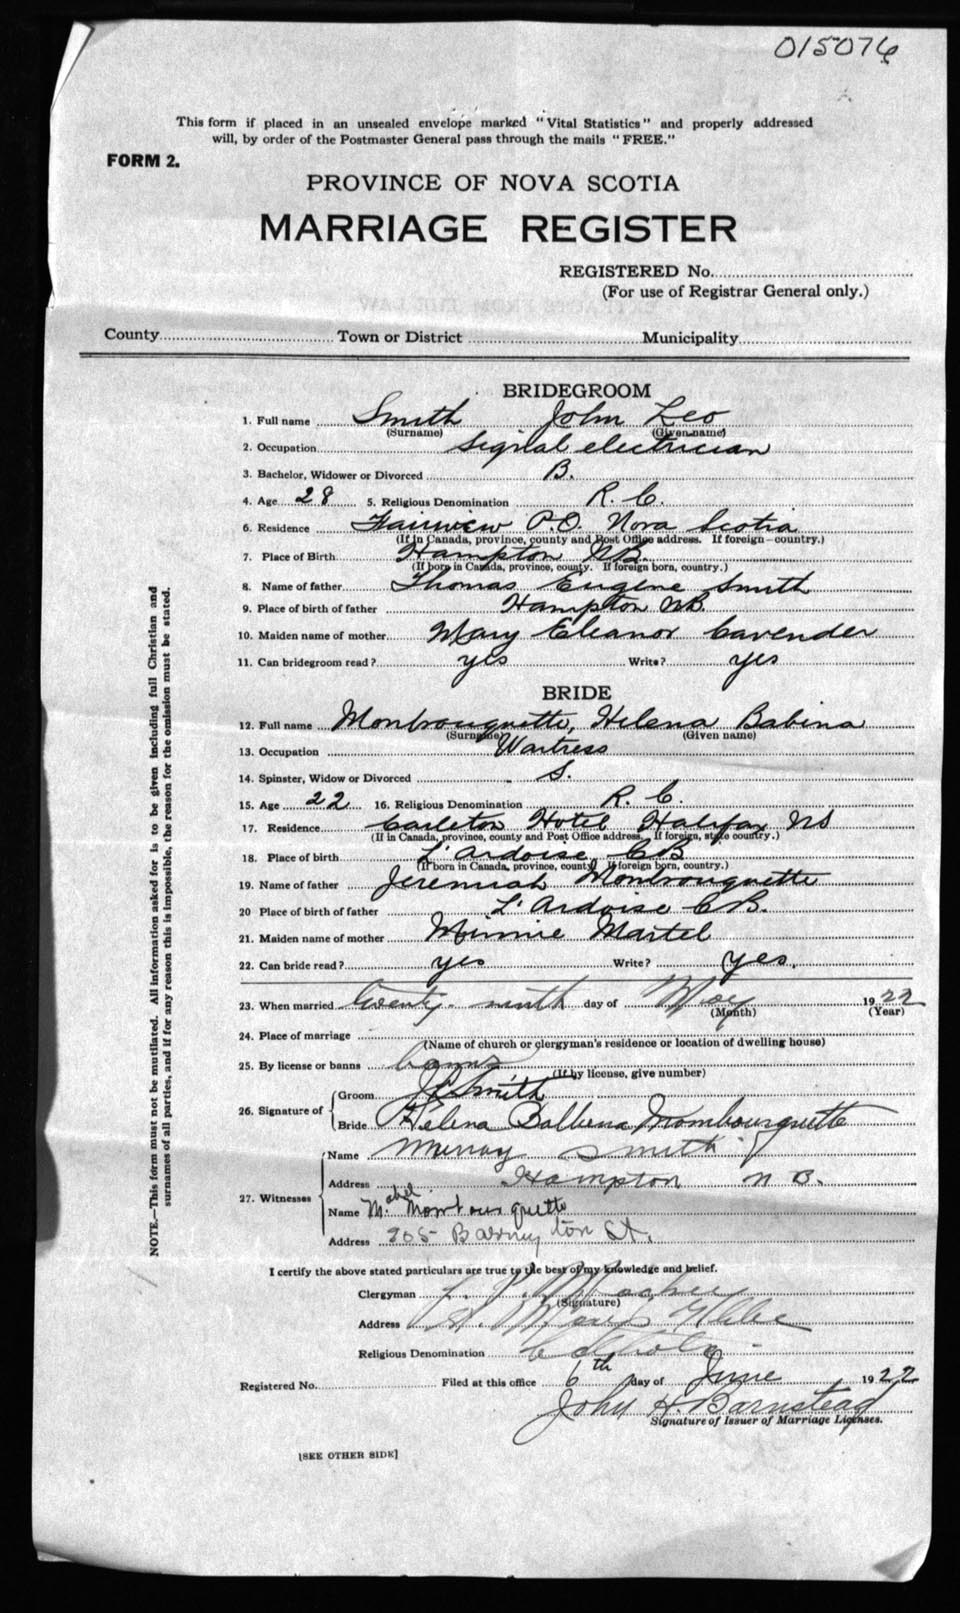 015076
This form if placed in an unsealed envelope marked "Vital Statistics" and properly addressed
will, by order of the Postmaster General pass through the mails "FREE."
FORM 2.
PROVINCE OF NOVA SCOTIA
MARRIAGE REGISTER
REGISTERED No.
(For use of Registrar General only.)
County Town or District Municipality
BRIDEGROOM
1. Full name Smith John Leo
(Surname) (Given name)
2. Occupation Signal electrician
3. Bachelor, Widower or Divorced B.
4. Age 28 5. Religious Denomination R. C.
6. Residence Fairview P.O. Nova Scotia
(If in Canada, province, county and Post Office address. If foreign—country.)
7. Place of Birth Hampton NB.
(If born in Canada, province, county. If foreign born, country.)
8. Name of father Thomas Eugene Smith
9. Place of birth of father Hampton NB.
10. Maiden name of mother Mary Eleanor Cavender
11. Can bridegroom read? yes Write? yes
BRIDE
12. Full name Mombrouquette, Helena Babina
(Surname) (Given name)
13. Occupation Waitress
14. Spinster, Widow or Divorced S.
15. Age 22 16. Religious Denomination R. C.
17. Residence Carleton Hotel Halifax NS
(If in Canada, province, county and Post Office address. If foreign, state country.)
18. Place of birth L'Ardoise CB
(If born in Canada, province, county. If foreign born, country.)
19. Name of father Jeremiah Mombrouquette
20 Place of birth of father L'Ardoise CB.
21. Maiden name of mother Minnie Martel
22. Can bride read? yes Write? yes.
23. When married twenty-ninth day of May 1922
(Month) (Year)
24. Place of marriage
(Name of church or clergyman's residence or location of dwelling house)
25. By license or banns banns
(If by license, give number)
26. Signature of Groom J L Smith
Bride Helena Balbena Mombourquette
27. Witnesses Name Murray Smith
Address Hampton N B.
Name Mabel Mombourquette
Address 205 Barrington St.
I certify the above stated particulars are true to the best of my knowledge and belief.
Clergyman
(Signature)
Address St. Mary's Glebe
Religious Denomination Catholic
Registered No. Filed at this office 6th day of June 1922
John H. Barnstead
Signature of Issuer of Marriage Licenses.
[SEE OTHER SIDE]
NOTE.—This form must not be mutilated. All information asked for is to be given including full Christian and
surnames of all parties, and if for any reason this is impossible, the reason for the omission must be stated.